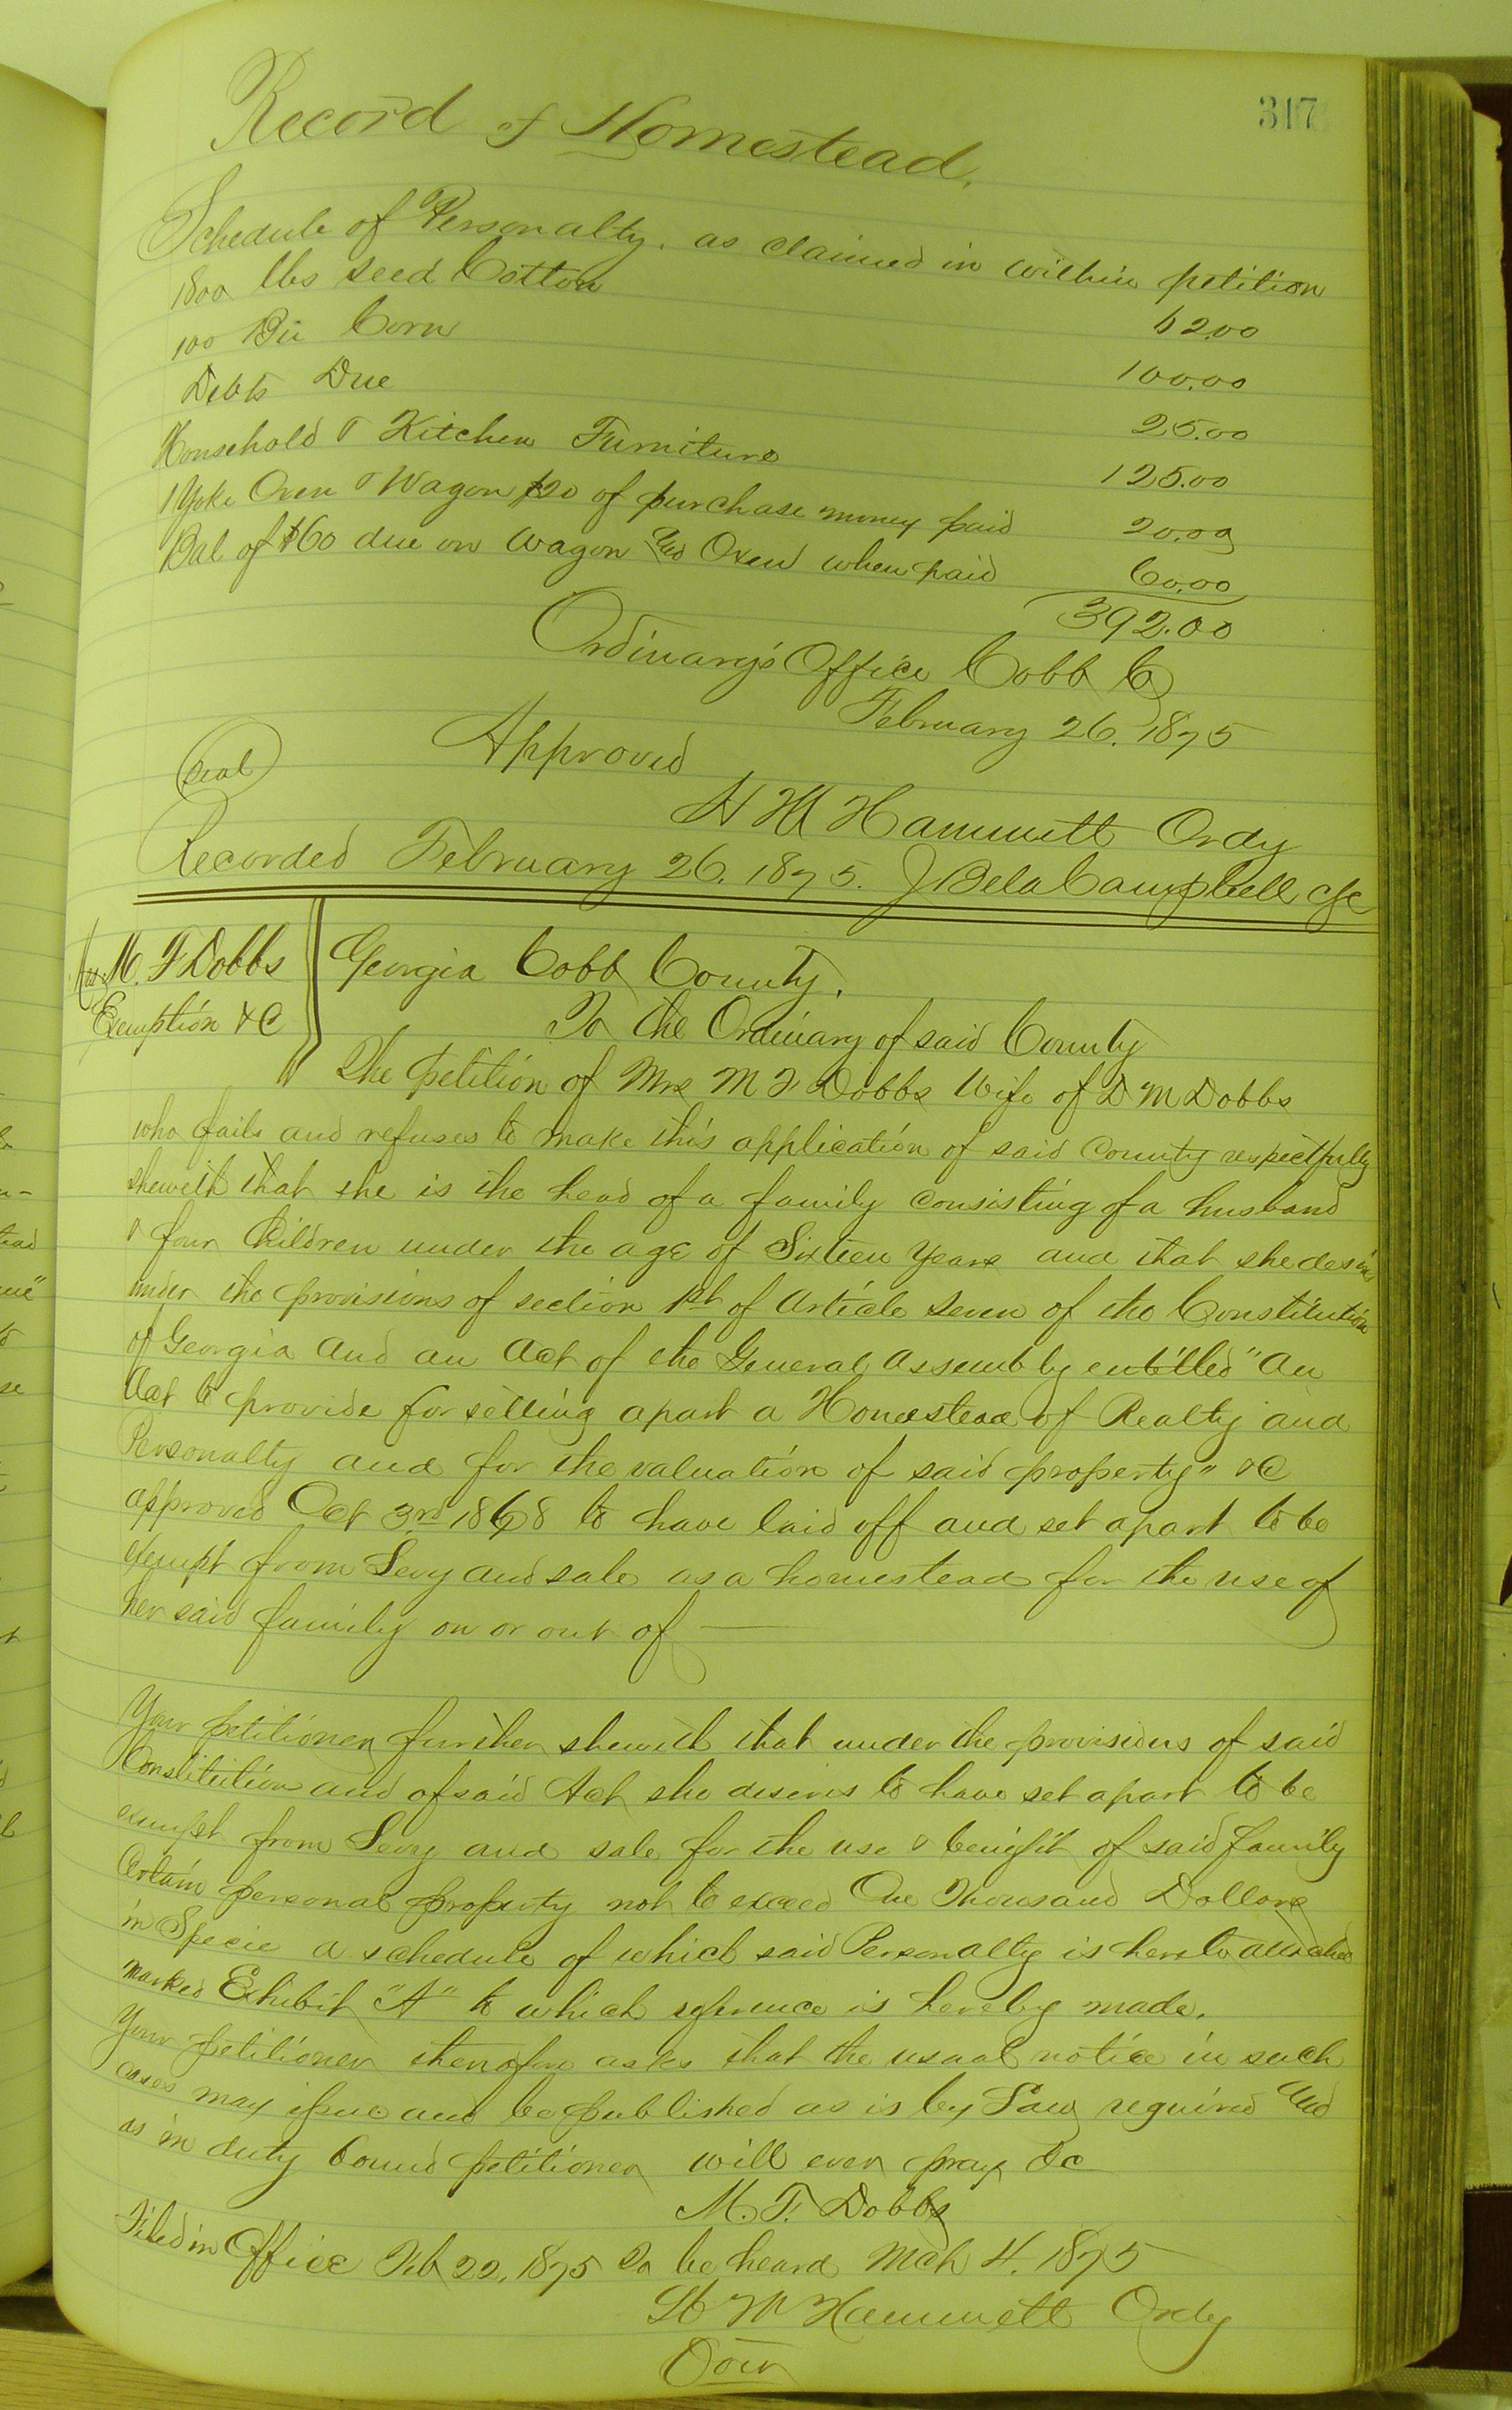 317
Record of Homestead.
Schedule of Personalty. as claimed in within petition
1800 lbs seed Cotton 62.00
100 Bu Corn 100.00
Debts Due 25.00
Household & Kitchen Furniture 125.00
1 Yoke Oxen & Wagon $20 of purchase money paid 20.00
Bal of $60 due on Wagon and Oxen when paid 60.00
392.00
Ordinary's Office Cobb Co
February 26. 1875
Seal Approved
H M Hammett Ordy
Recorded February 26. 1875. J Bela Campbell CSC
Mrs M. F Dobbs
Exemption &C
Georgia Cobb County.
To the Ordinary of said County
The petition of Mrs M F Dobbs Wife of D M Dobbs
who fails and refuses to make this application of said County respectfully
sheweth that she is the head of a family consisting of a husband
& four Children under the age of Sixteen Years and that she desires
under the provisions of section 1st of Article Seven of the Constitution
of Georgia and an Act of the General Assembly entitled "An
Act to provide for setting apart a Homestead of Realty and
Personalty and for the valuation of said property" &C
approved Oct 3rd 1868 to have laid off and set apart to be
exempt from Levy and sale as a homestead for the use of
her said family on or out of —
Your petitioner further sheweth that under the provisions of said
Constitution and of said Act she desires to have set apart to be
exempt from Levy and sale for the use & benifit of said family
Certain personal property not to exceed One Thousand Dollars
in Specie a schedule of which said Personalty is hereto attached
marked Exhibit "A" to which reference is hereby made.
Your petitioner therefore asks that the usual notice in such
cases may issue and be published as is by Law required and
as in duty bound petitioner will ever pray &c
M. F. Dobbs
Filed in Office Feb 22, 1875 To be heard Mch 4. 1875
H M Hammett Ordy
Over